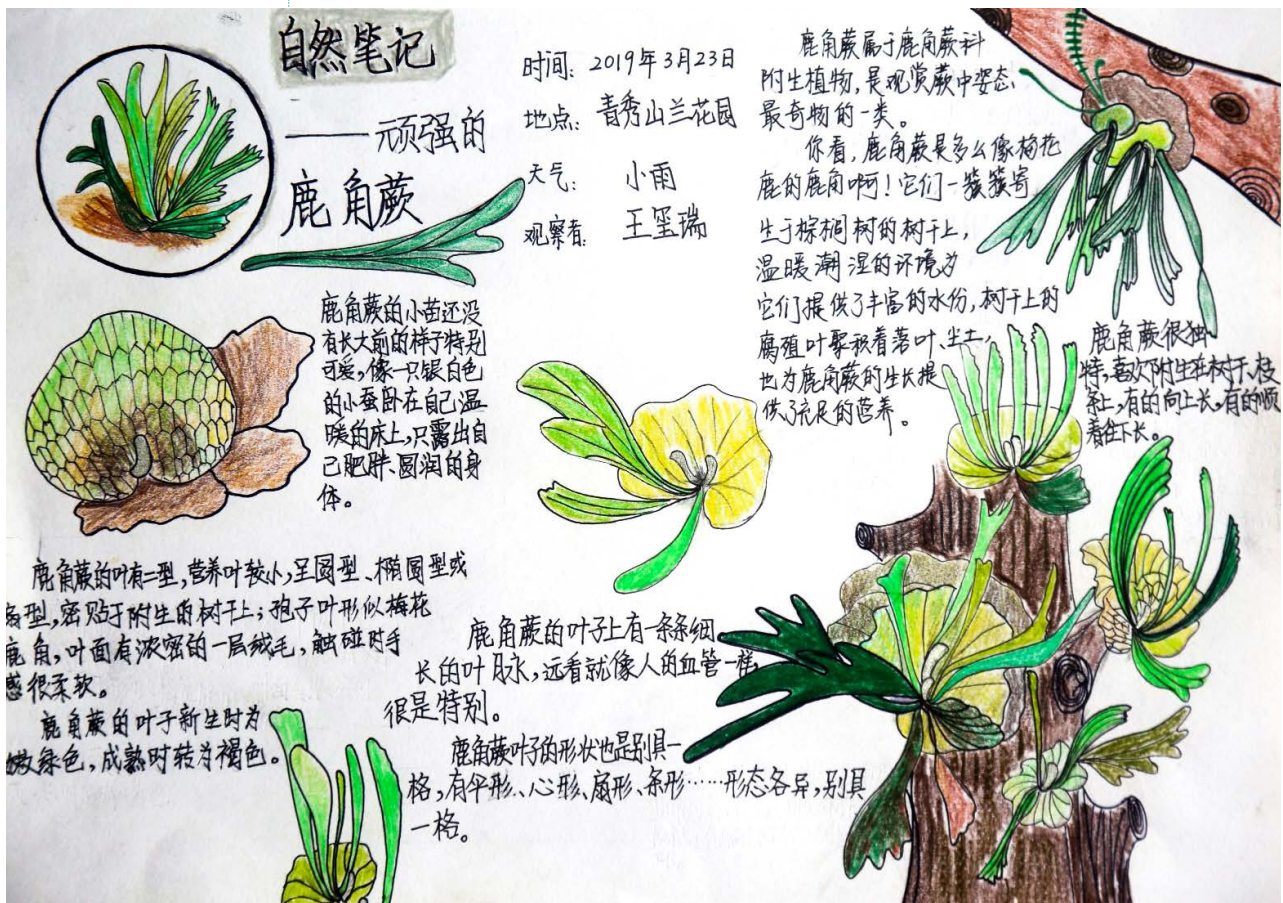 自然笔记
——顽强的
鹿角蕨
时间：2019年3月23日
地点：青秀山兰花园
天气：小雨
观察者：王玺瑞
鹿角蕨属于鹿角蕨科
附生植物，是观赏蕨中姿态
最奇物的一类。
你看，鹿角蕨是多么像梅花
鹿的鹿角啊！它们一簇簇寄
生于棕榈树的树干上，
温暖潮湿的环境为
它们提供了丰富的水份，树干上的
腐殖叶聚积着落叶、尘土，
也为鹿角蕨的生长提
供了充足的营养。
鹿角蕨很独
特，喜欢附生在树干、枝
条上，有的向上长，有的顺
着往下长。
鹿角蕨的小苗还没
有长大前的样子特别
可爱，像一只银白色
的小蚕卧在自己温
暖的床上，只露出自
己肥胖、圆润的身
体。
鹿角蕨的叶有二型，营养叶较小，呈圆型、椭圆型或
扇型，密贴于附生的树干上；孢子叶形似梅花
鹿角，叶面有浓密的一层绒毛，触碰时手
感很柔软。
鹿角蕨的叶子新生时为
嫩绿色，成熟时转为褐色。
鹿角蕨的叶子上有一条条细
长的叶脉，远看就像人的血管一样，
很是特别。
鹿角蕨叶子的形状也是别具一
格，有伞形、心形、扇形、条形……形态各异，别具
一格。